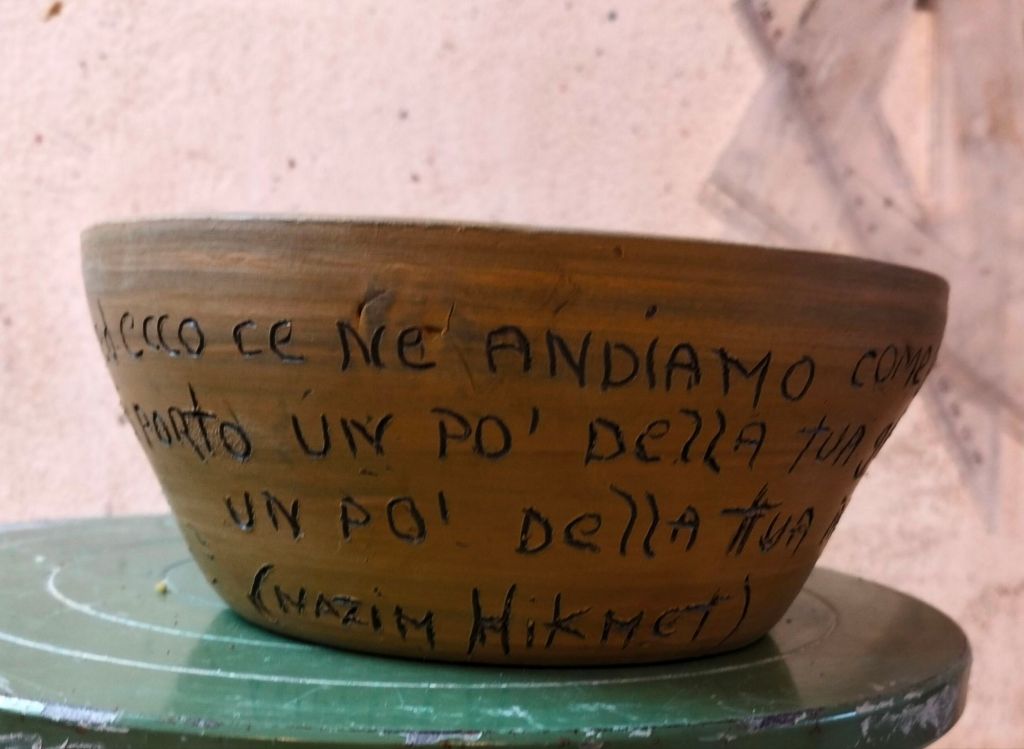 ed ecco ce Ne' ANDiAMO COME
PORTO UN PO' Della TUA
UN PO' Della TUA
(NAZIM HIKMET)